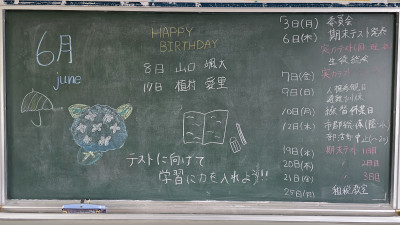 6月
june
HAPPY
BIRTHDAY
8日 山口 颯大
17日 植村 愛里
テストに向けて
学習に力を入れよう!!
3日(月) 委員会
6日(木) 期末テスト発表
生徒総会
7日(金)
9日(日)
10日(月) 振替休業日
12日(水)
19日(水) 期末テスト 1日目
20日(木) 2日目
21日(金) 3日目
租税教室